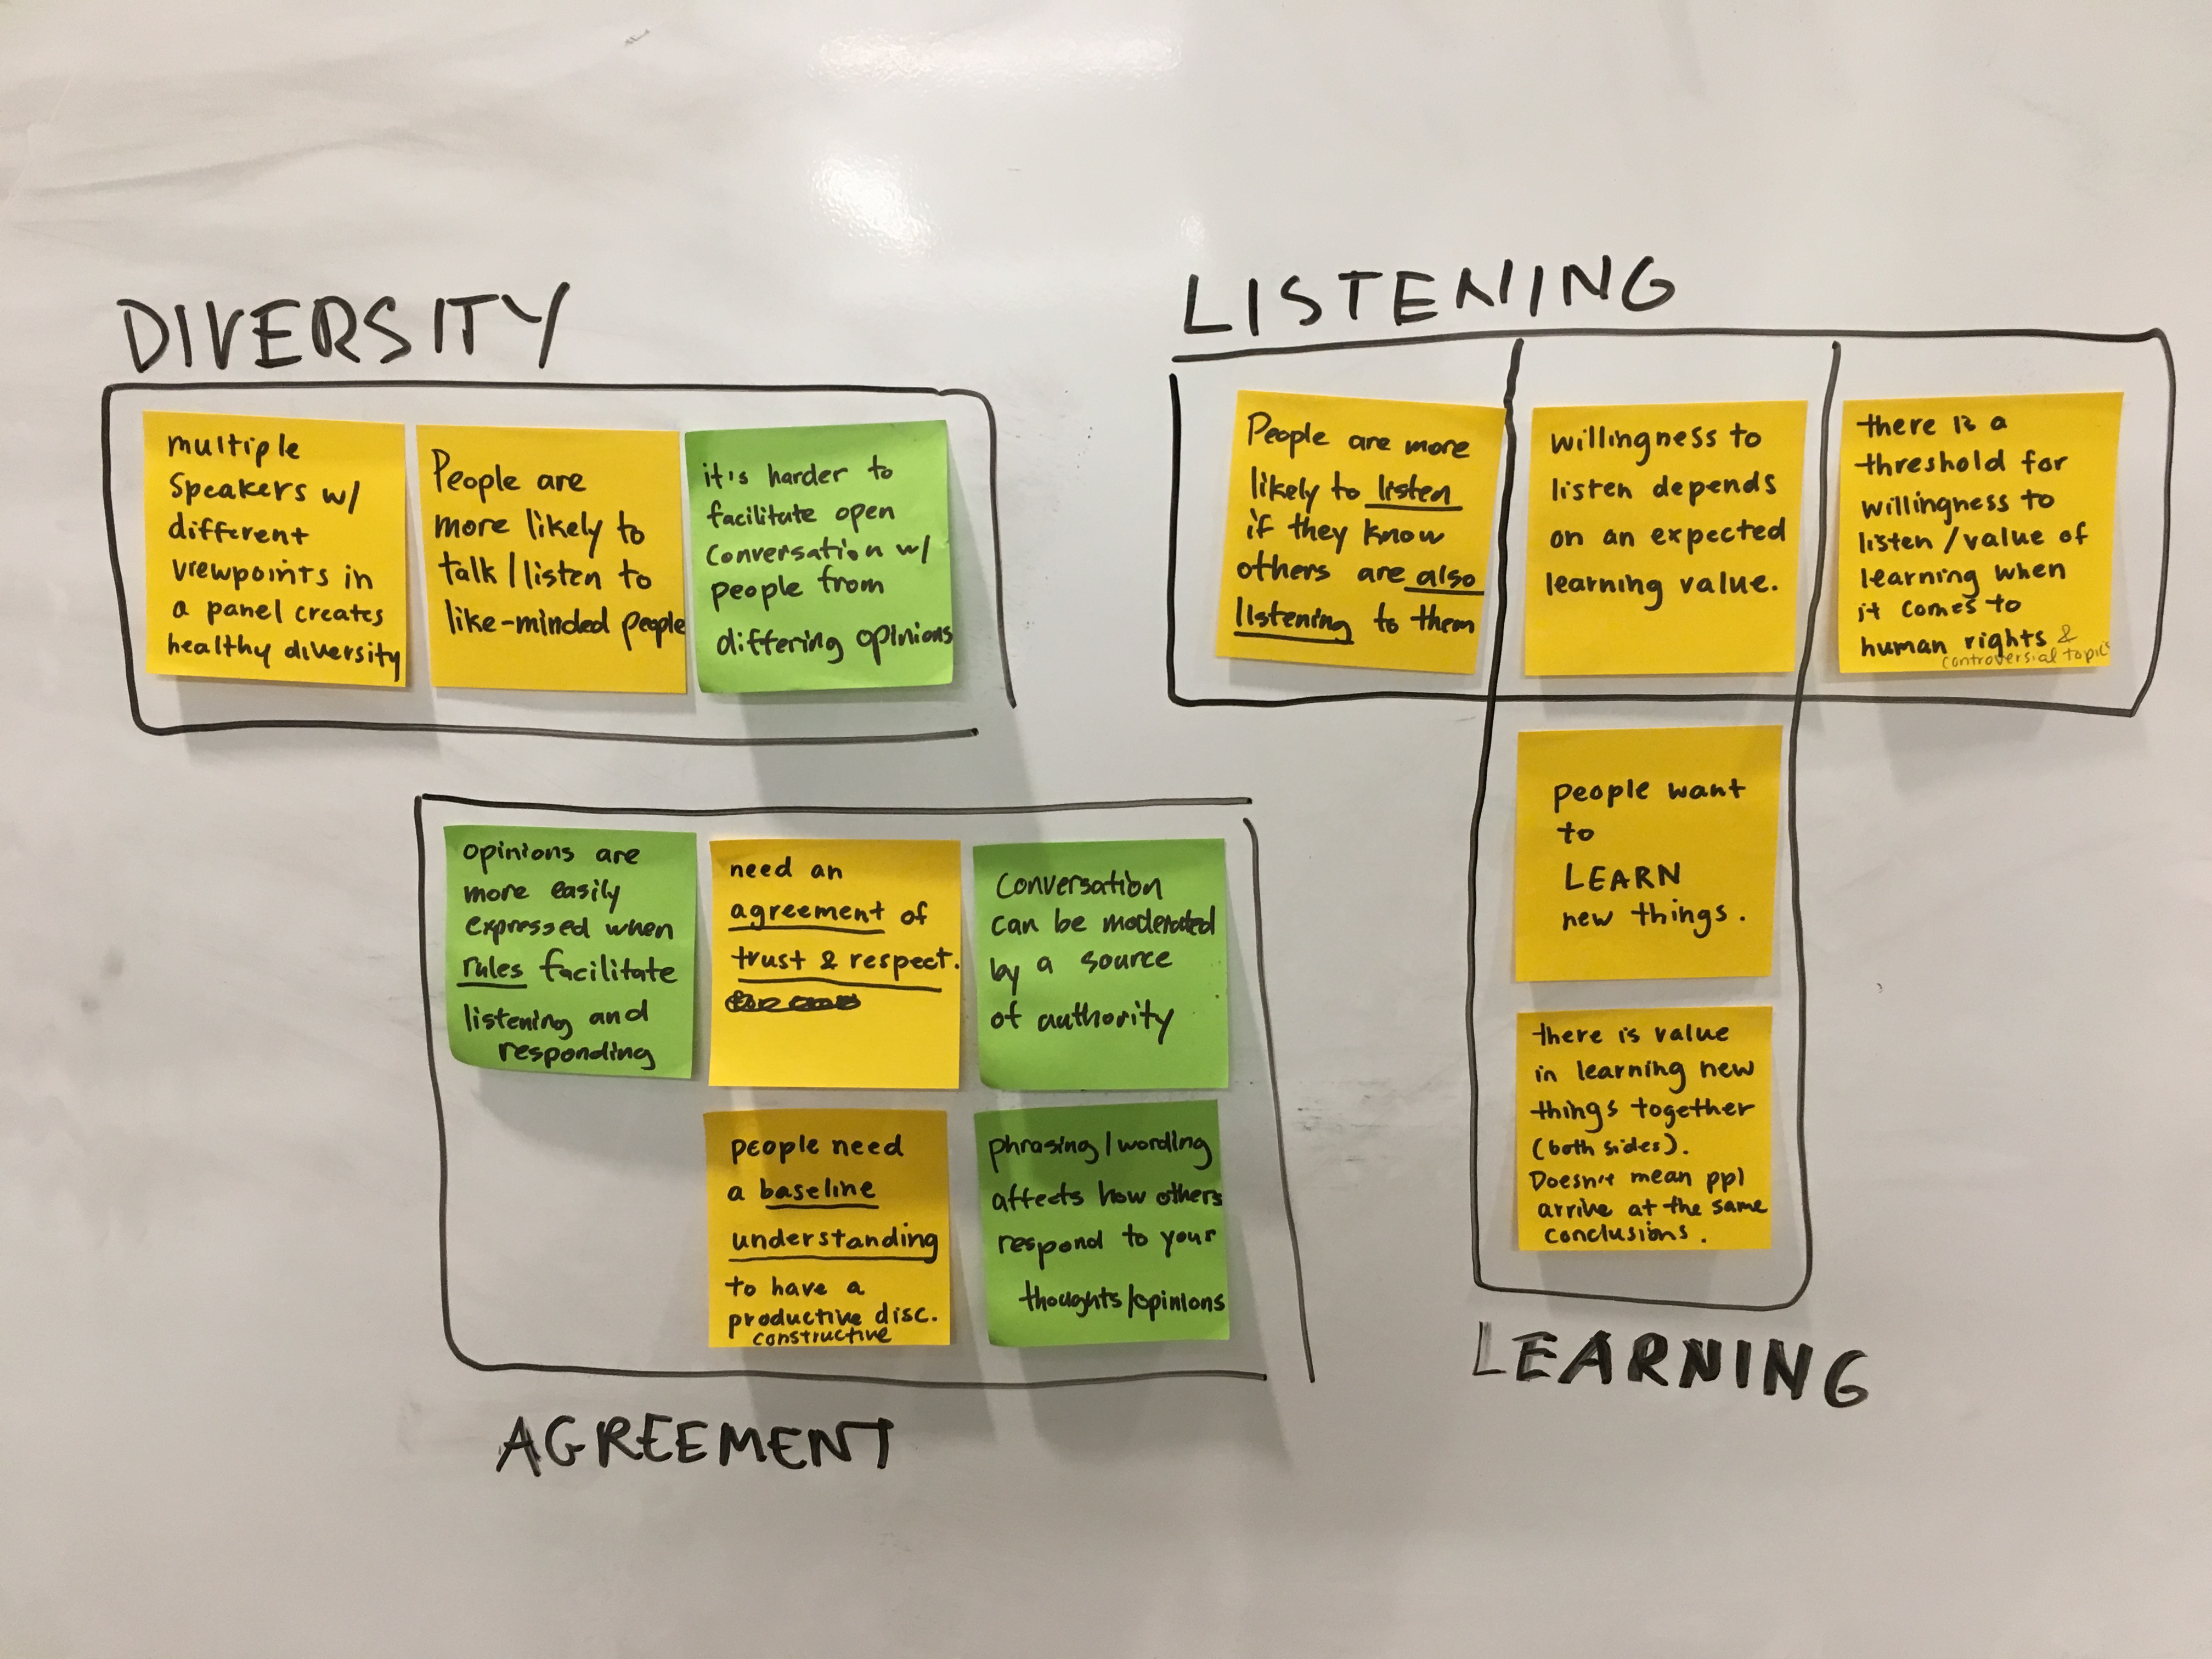 DIVERSITY
multiple
speakers w/
different
viewpoints in
a panel creates
healthy diversity
People are
more likely to
talk/listen to
like-minded people
it's harder to
facilitate open
conversation w/
people from
differing opinions
LISTENING
People are more
likely to listen
if they know
others are also
listening to them
willingness to
listen depends
on an expected
learning value.
there is a
threshold for
willingness to
listen/value of
learning when
it comes to
human rights &
controversial topics
people want
to
LEARN
new things.
there is value
in learning new
things together
(both sides).
Doesn't mean ppl
arrive at the same
conclusions.
LEARNING
opinions are
more easily
expressed when
rules facilitate
listening and
responding
need an
agreement of
trust & respect.
Conversation
can be moderated
by a source
of authority
people need
a baseline
understanding
to have a
productive disc.
constructive
phrasing/wording
affects how others
respond to your
thoughts/opinions
AGREEMENT